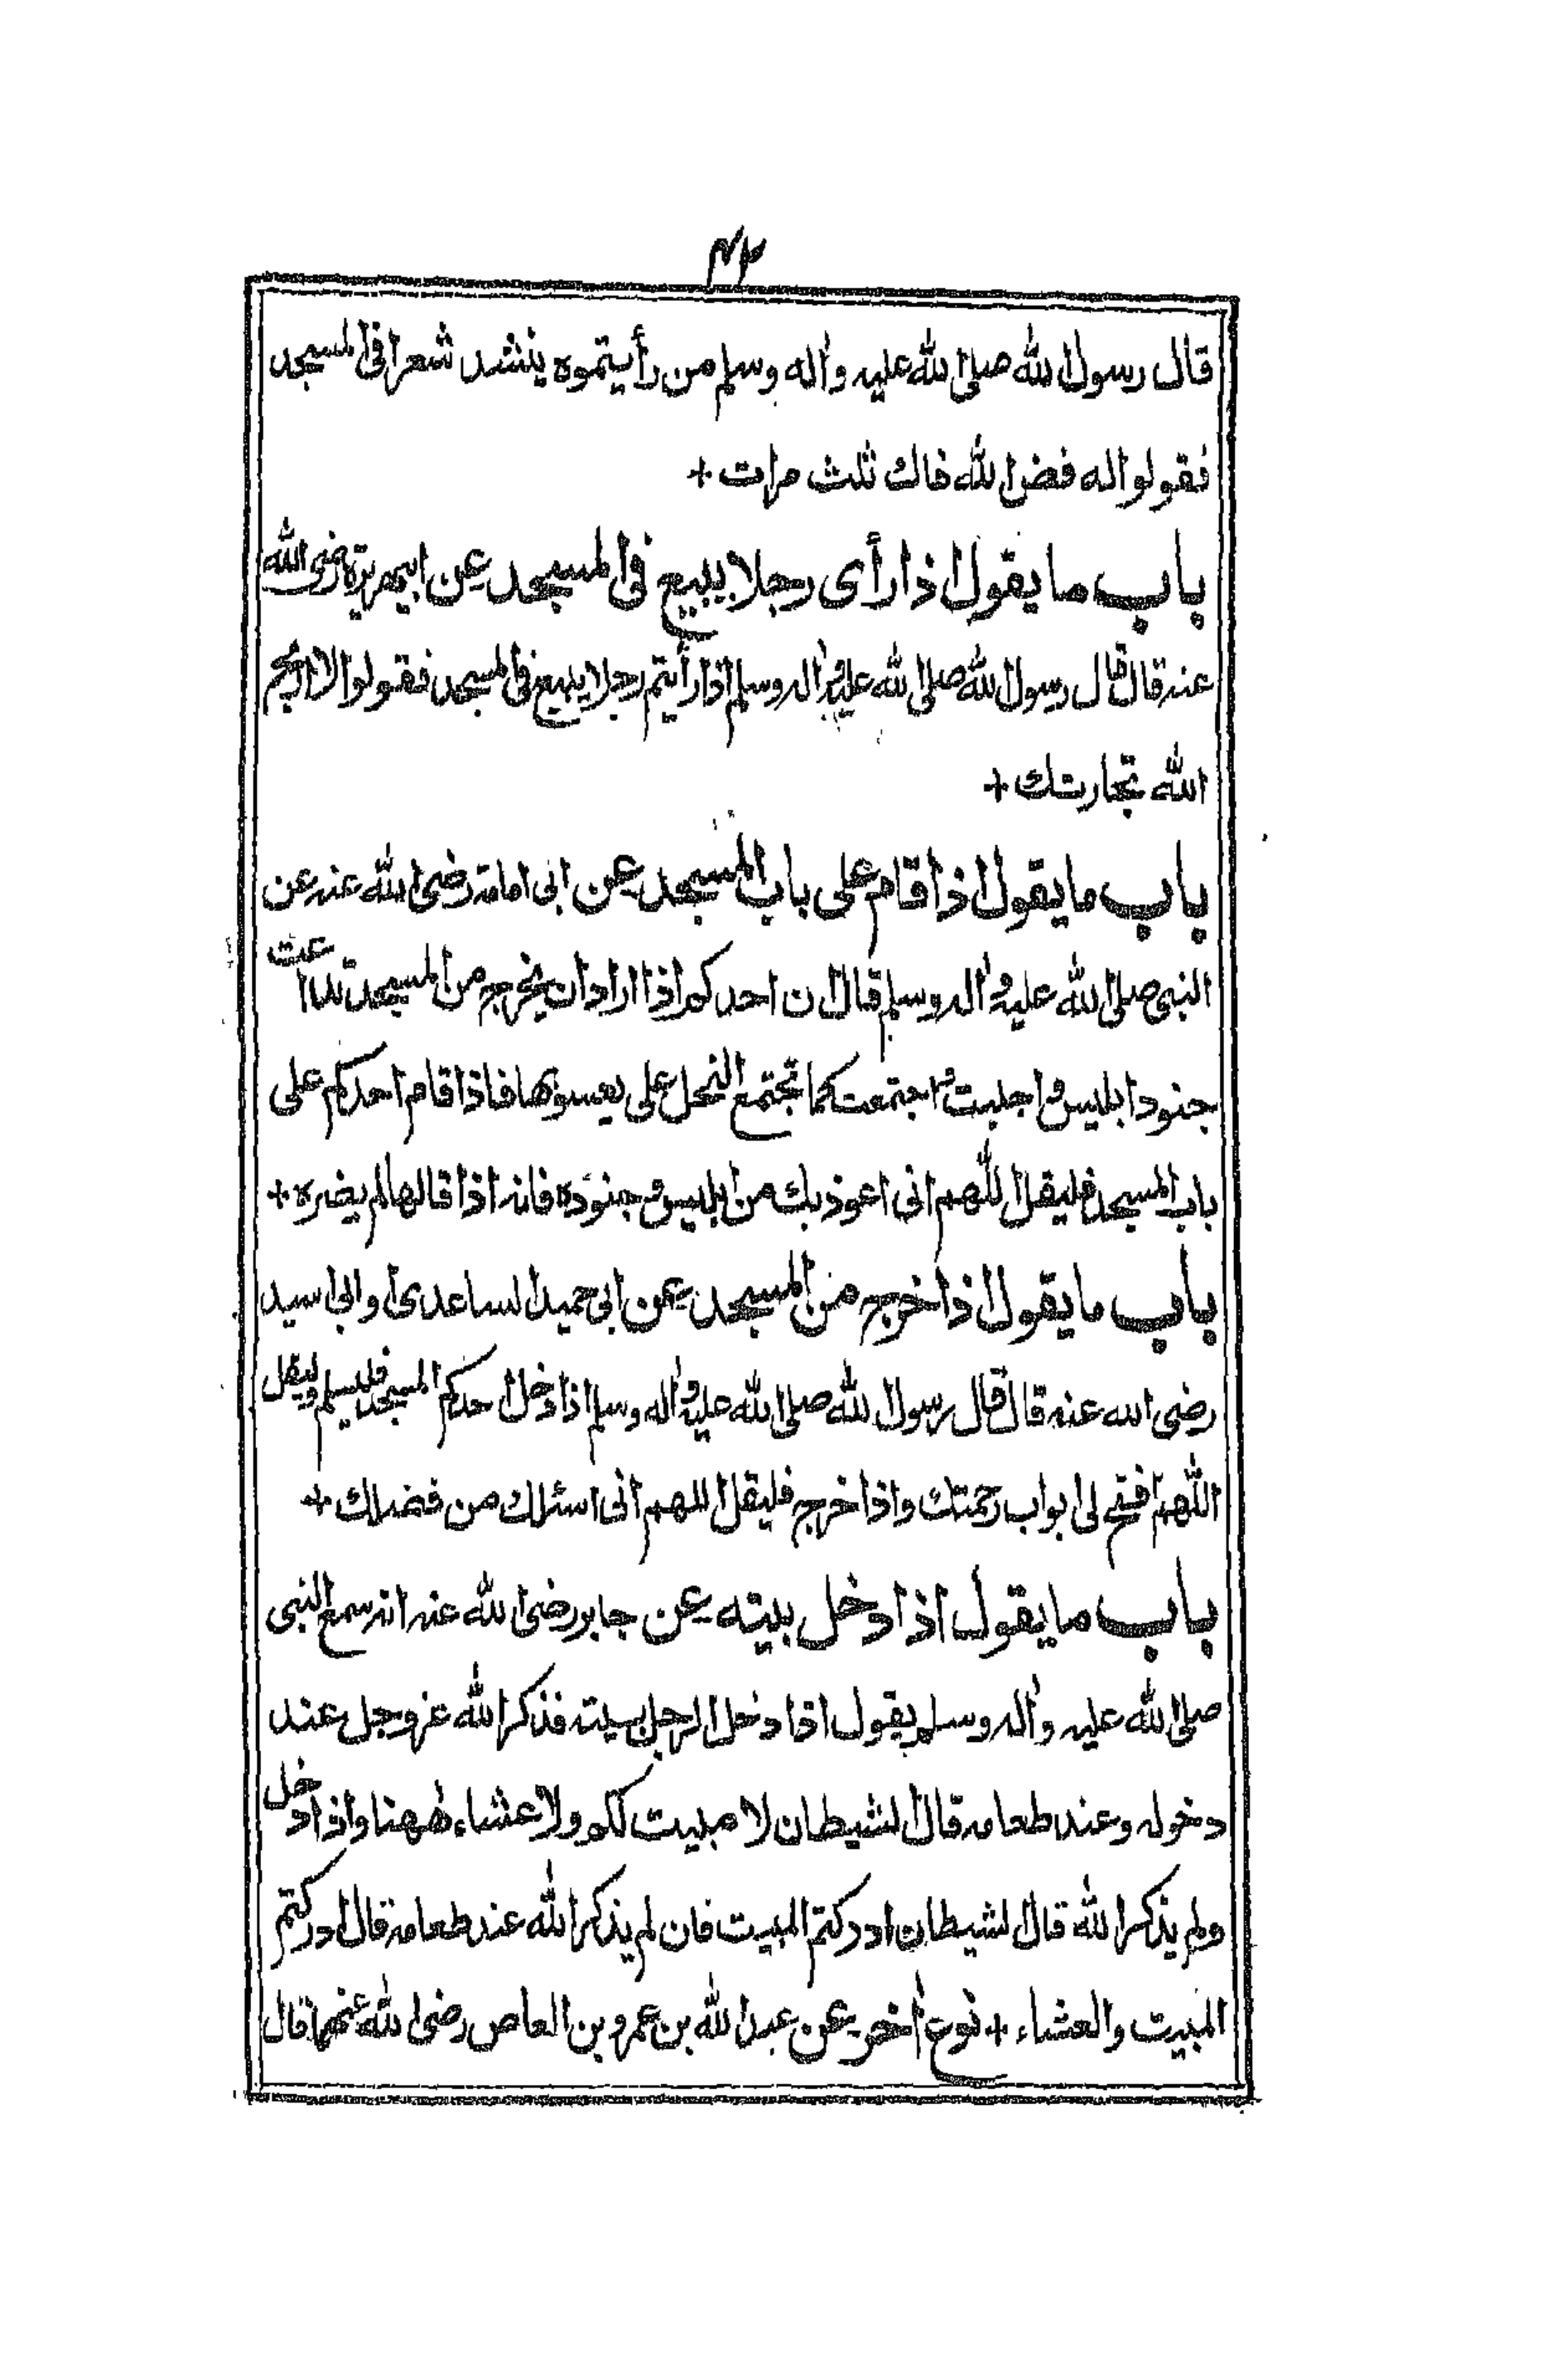 ٤٣
قال رسول الله صلى الله عليه واٰله وسلم من رأيتموه ينشد شعرا فى المسجد
فقولوا له فض الله فاك ثلث مرات +
باب ما يقول اذا رأى رجلا يبيع فى المسجد عن ابيهريرة رضى الله
عنه قال قال رسول الله صلى الله عليه واٰله وسلم اذا رأيتم رجلا يبيع فى المسجد فقولوا لا اربح
الله تجارتك +
باب ما يقول اذا قام على باب المسجد عن ابى امامة رضى الله عنه عن
النبى صلى الله عليه واٰله وسلم قال ان احدكم اذا اراد ان يخرج من المسجد تداعت
جنود ابليس واجلبت واجتمعت كما تجتمع النحل على يعسوبها فاذا قام احدكم على
باب المسجد فليقل اللّٰهم انى اعوذ بك من ابليس وجنوده فانه اذا قالها لم يضره +
باب ما يقول اذا خرج من المسجد عن ابى حميد الساعدى وابى اسيد
رضى الله عنه قال قال رسول الله صلى الله عليه واٰله وسلم اذا دخل احدكم المسجد فليسلم وليقل
اللّٰهم افتح لى ابواب رحمتك واذا خرج فليقل اللهم انى اسئلك من فضلك +
باب ما يقول اذا دخل بيته عن جابر رضى الله عنه انه سمع النبى
صلى الله عليه واٰله وسلم يقول اذا دخل الرجل بيته فذكر الله عز وجل عند
دخوله وعند طعامه قال الشيطان لا مبيت لكم ولا عشاء هٰهنا واذا دخل
ولم يذكر الله قال الشيطان ادركتم المبيت فان لم يذكر الله عند طعامه قال ادركتم
المبيت والعشاء + نوع اٰخر عن عبد الله بن عمرو بن العاص رضى الله عنهما قال